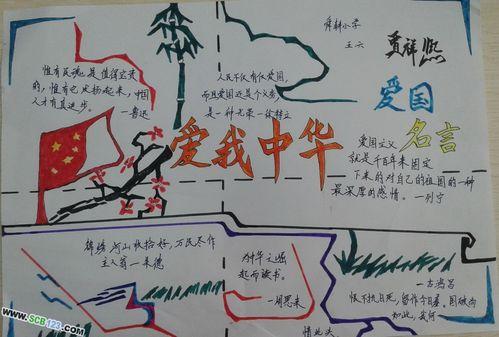 舜耕小学
王六
贾祥熙
惟有民魂是值得宝贵
的，惟有它发扬起来，中国
人才有真进步。
—鲁迅
人民不仅有权爱国，
而且爱国还是个义务，
是一种光荣—徐特立
爱国
名言
爱我中华
爱国主义
就是千百年来固定
下来的对自己的祖国的一种
最深厚的感情。—列宁
锦绣河山收拾好，万民尽作
主人翁—朱德
为中华之崛
起而读书。
—周恩来
—吉鸿昌
恨不抗日死，留作今日羞。国破尚
如此，我何
惜此头
www.SCB123.com